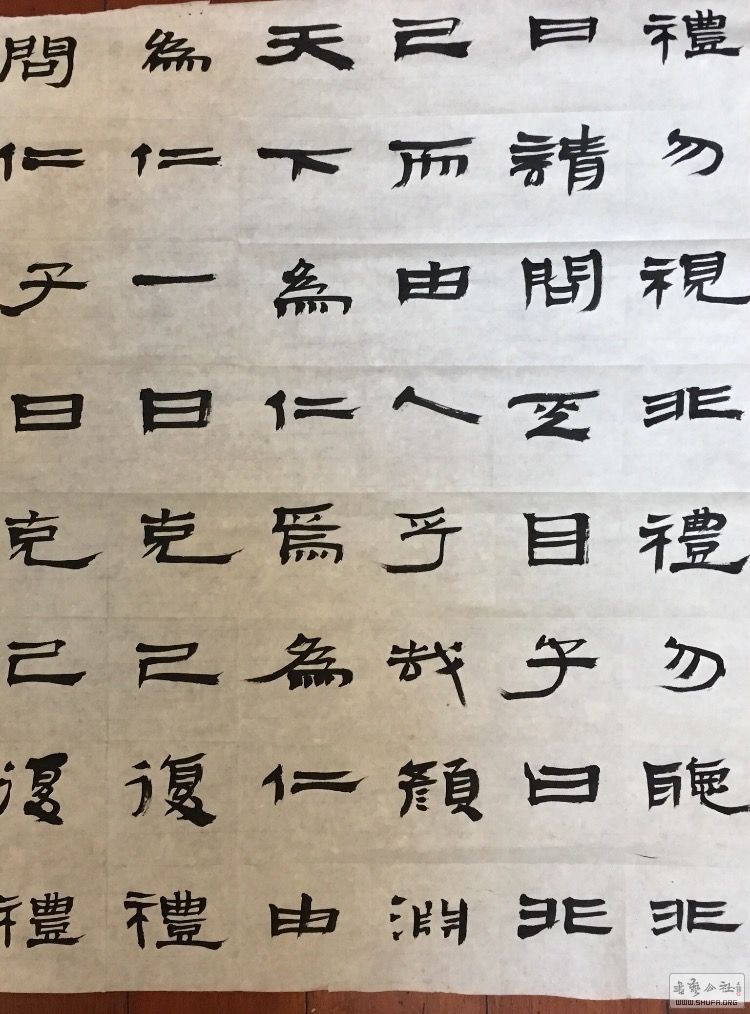 問仁子曰克己復禮
為仁一日克己復禮
天下為仁焉為仁由
己而由人乎哉顏淵
曰請問目子曰非
禮勿視非禮勿聽非
書藝公社
WWW.SHUFA.ORG